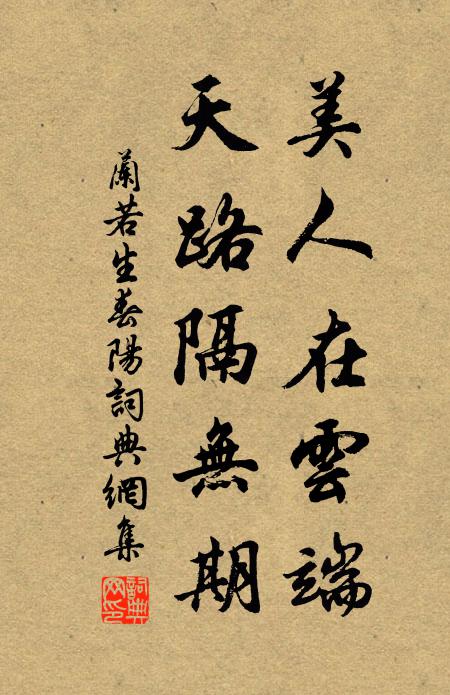 美人在雲端
天路隔無期
蘭若生春陽詞典網集
詞典網印